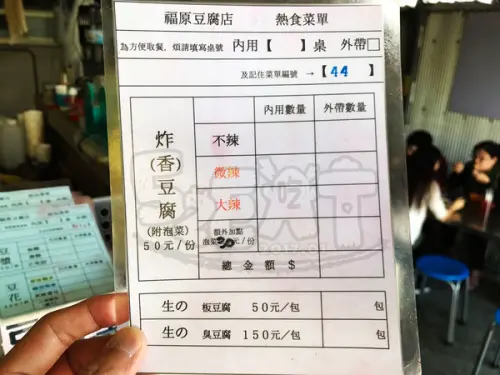 福原豆腐店 熱食菜單
為方便取餐，煩請填寫桌號 內用【 】桌 外帶□
及記住菜單編號 →【44】
內用數量 外帶數量
炸(香)豆腐
(附泡菜)
50元/份
不辣
微辣
大辣
額外加點
泡菜 元/份
總金額 $
生の 板豆腐 50元/包 包
生の 臭豆腐 150元/包 包
豆漿
豆花